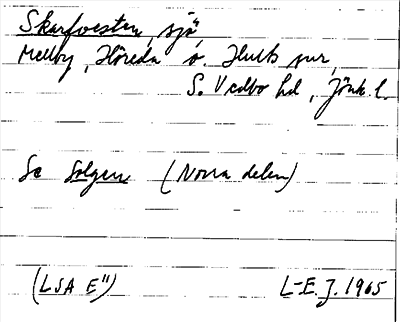 Skarfvesten, sjö
Mellby, Höreda o. Hults snr,
S. Vedbo hd, Jönk. l.
Se Solgen (Norra delen)
(LSA E") L-E. J. 1965